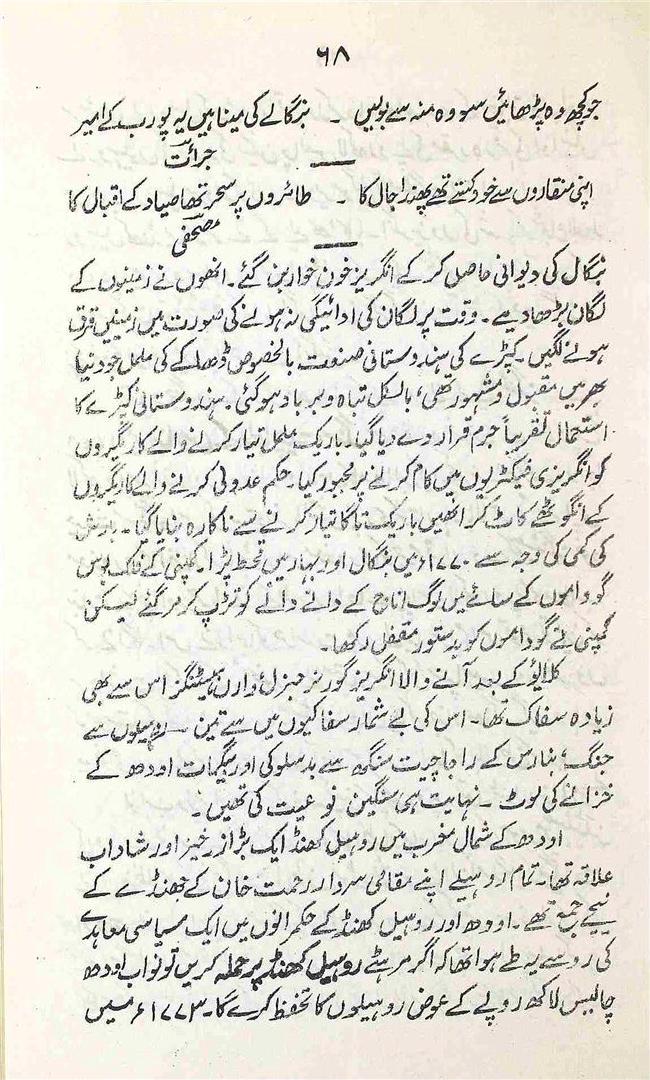 ۶۸
جو کچھ وہ پڑھائیں سو وہ منہ سے بولیں ۔ بنگالے کی مینا ہیں یہ پورب کے امیر
جرأت
اپنی منقاروں سے خود کستے تھے پھندا جال کا ۔ طائروں پر سحر تھا صیاد کے اقبال کا
مصحفی
بنگال کی دیوانی حاصل کر کے انگریز خون خوار بن گئے۔ انھوں نے زمینوں کے
لگان بڑھا دیے۔ وقت پر لگان کی ادائیگی نہ ہونے کی صورت میں زمینیں قرق
ہونے لگیں۔ کپڑے کی ہندوستانی صنعت بالخصوص ڈھاکے کی ململ جو دنیا
بھر میں مقبول و مشہور تھی، بالکل تباہ و برباد ہوگئی۔ ہندوستانی کپڑے کا
استعمال تقریباً جرم قرار دے دیا گیا۔ باریک ململ تیار کرنے والے کاریگروں
کو انگریزی فیکٹریوں میں کام کرنے پر مجبور کیا۔ حکم عدولی کرنے والے کاریگروں
کے انگوٹھے کاٹ کر انھیں باریک تاگا تیار کرنے سے ناکارہ بنایا گیا۔ بارش
کی کمی کی وجہ سے ۱۷۷۰ء میں بنگال اور بہار میں قحط پڑا۔ کمپنی کے فلک بوس
گوداموں کے سائے میں لوگ اناج کے دانے دانے کو تڑپ کر مر گئے لیکن
کمپنی نے گوداموں کو بدستور مقفل رکھا۔
کلائیو کے بعد آنے والا انگریز گورنر جنرل وارن ہیسٹنگز اس سے بھی
زیادہ سفاک تھا۔ اس کی بے شمار سفاکیوں میں سے تین ــ روہیلوں سے
جنگ، بنارس کے راجا چیت سنگھ سے بدسلوکی اور بیگمات اودھ کے
خزانے کی لوٹ ۔ نہایت ہی سنگین نوعیت کی تھیں۔
اودھ کے شمال مغرب میں روہیل کھنڈ ایک بڑا زرخیز اور شاداب
علاقہ تھا۔ تمام روہیلے اپنے مقامی سردار رحمت خان کے جھنڈے کے
نیچے جمع تھے۔ اودھ اور روہیل کھنڈ کے حکمرانوں میں ایک سیاسی معاہدے
کی رو سے یہ طے ہوا تھا کہ اگر مرہٹے روہیل کھنڈ پر حملہ کریں تو نواب اودھ
چالیس لاکھ روپے کے عوض روہیلوں کا تحفظ کرے گا۔ ۱۷۷۳ء میں